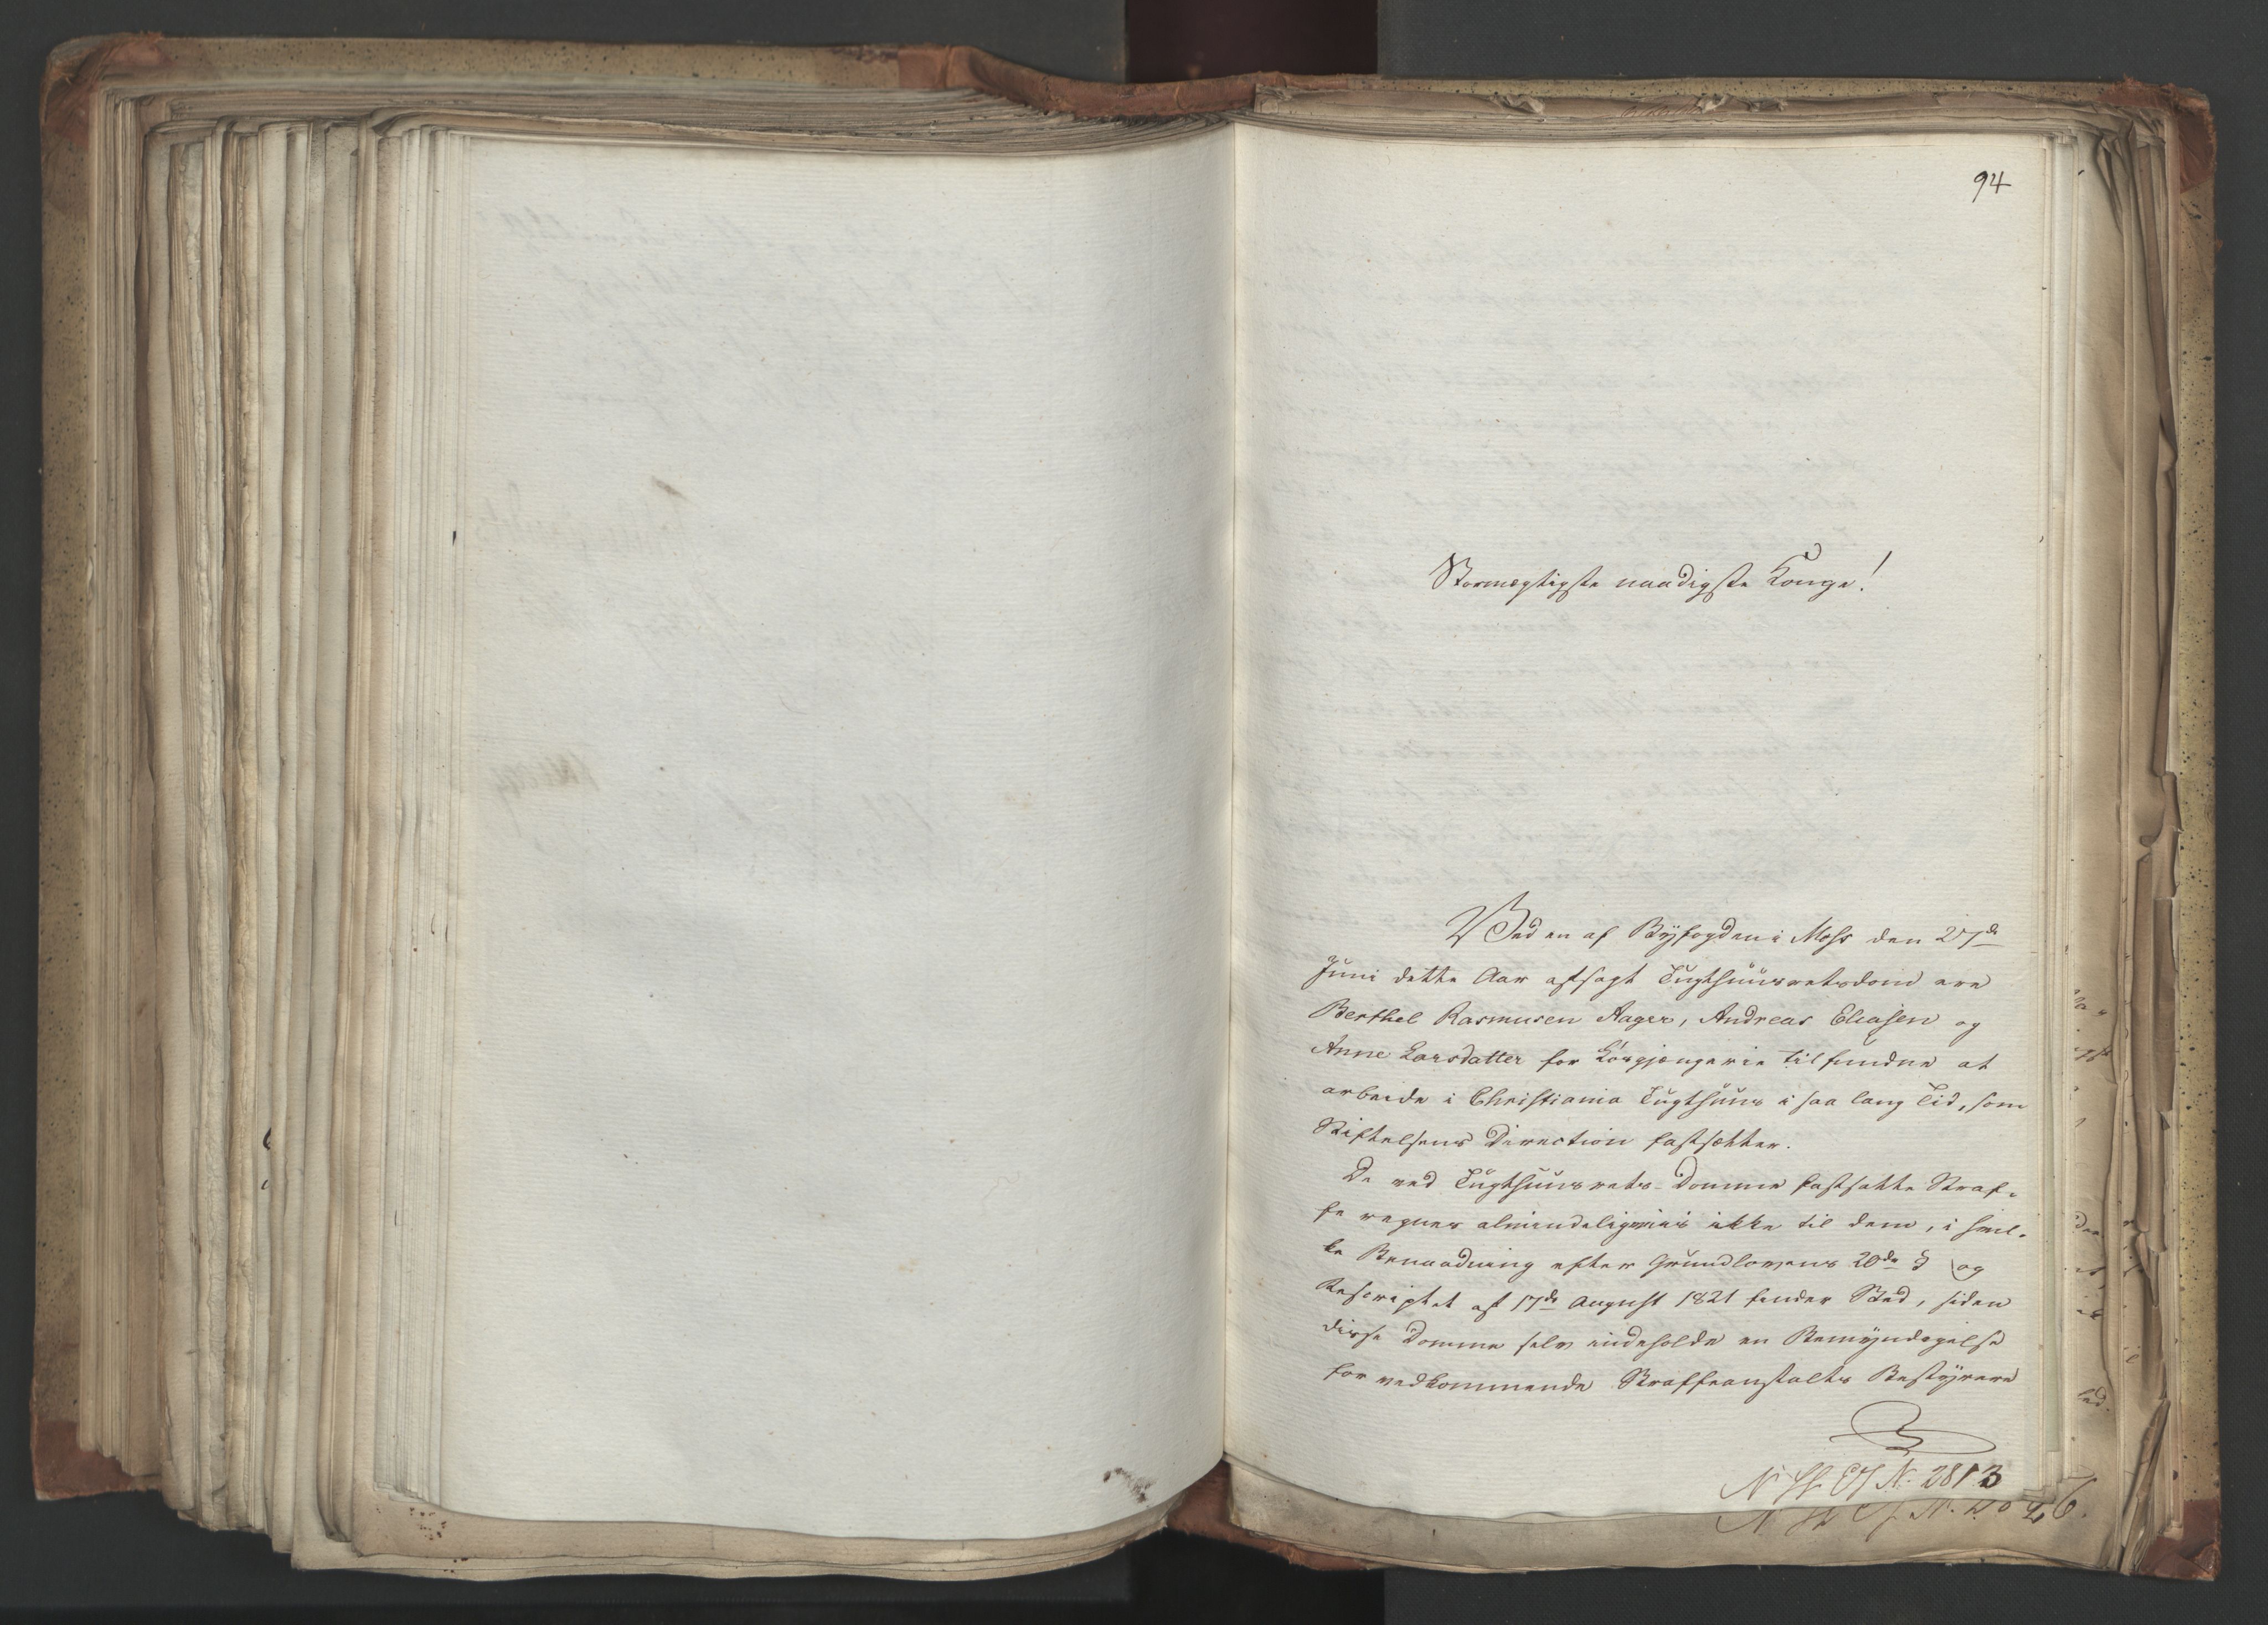 94
Stormægtigste naadigste Konge!
Ved en af Byfogden i Moss den 27de
Juni dette Aar afsagt Tugthuusretsdom ere
Berthel Rasmusen Aager, Andreas Eliasen og
Anne Larsdatter for Løsgjængerie tilfundne at
arbeide i Christiania Tugthuus i saa lang Tid, som
Stiftelsens Direction fastsætter.
De ved Tugthuusrets-Domme fastsatte Straf-
fe regnes almindeligviis ikke til dem, i hvil-
ke Benaadning efter Grundlovens 20de § og
Rescriptet af 17de August 1821 finder Sted, siden
disse Domme selv indeholde en Bemyndigelse
for vedkommende Straffeanstalts Bestyrere
N. 2813